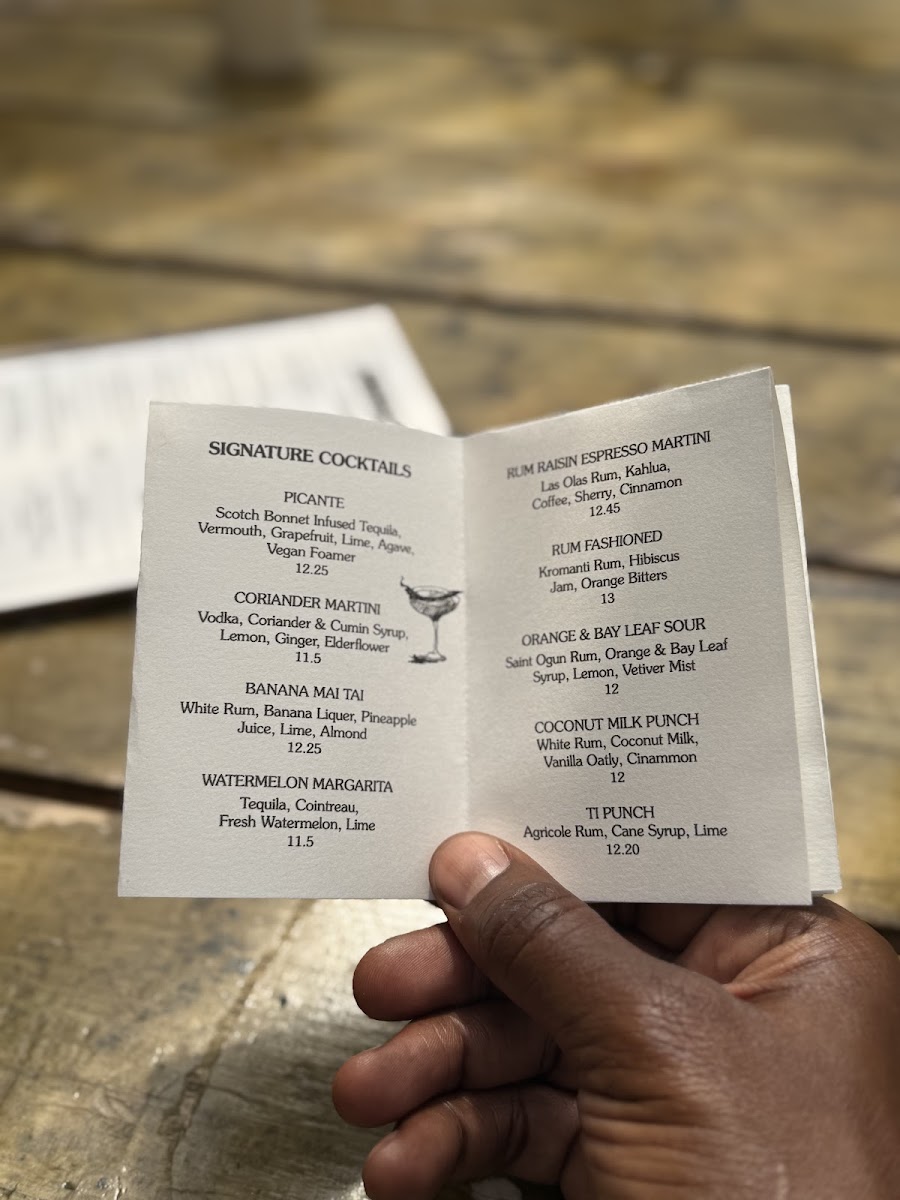 SIGNATURE COCKTAILS
PICANTE
Scotch Bonnet Infused Tequila,
Vermouth, Grapefruit, Lime, Agave,
Vegan Foamer
12.25
CORIANDER MARTINI
Vodka, Coriander & Cumin Syrup,
Lemon, Ginger, Elderflower
11.5
BANANA MAI TAI
White Rum, Banana Liquer, Pineapple
Juice, Lime, Almond
12.25
WATERMELON MARGARITA
Tequila, Cointreau,
Fresh Watermelon, Lime
11.5
RUM RAISIN ESPRESSO MARTINI
Las Olas Rum, Kahlua,
Coffee, Sherry, Cinnamon
12.45
RUM FASHIONED
Kromanti Rum, Hibiscus
Jam, Orange Bitters
13
ORANGE & BAY LEAF SOUR
Saint Ogun Rum, Orange & Bay Leaf
Syrup, Lemon, Vetiver Mist
12
COCONUT MILK PUNCH
White Rum, Coconut Milk,
Vanilla Oatly, Cinammon
12
TI PUNCH
Agricole Rum, Cane Syrup, Lime
12.20